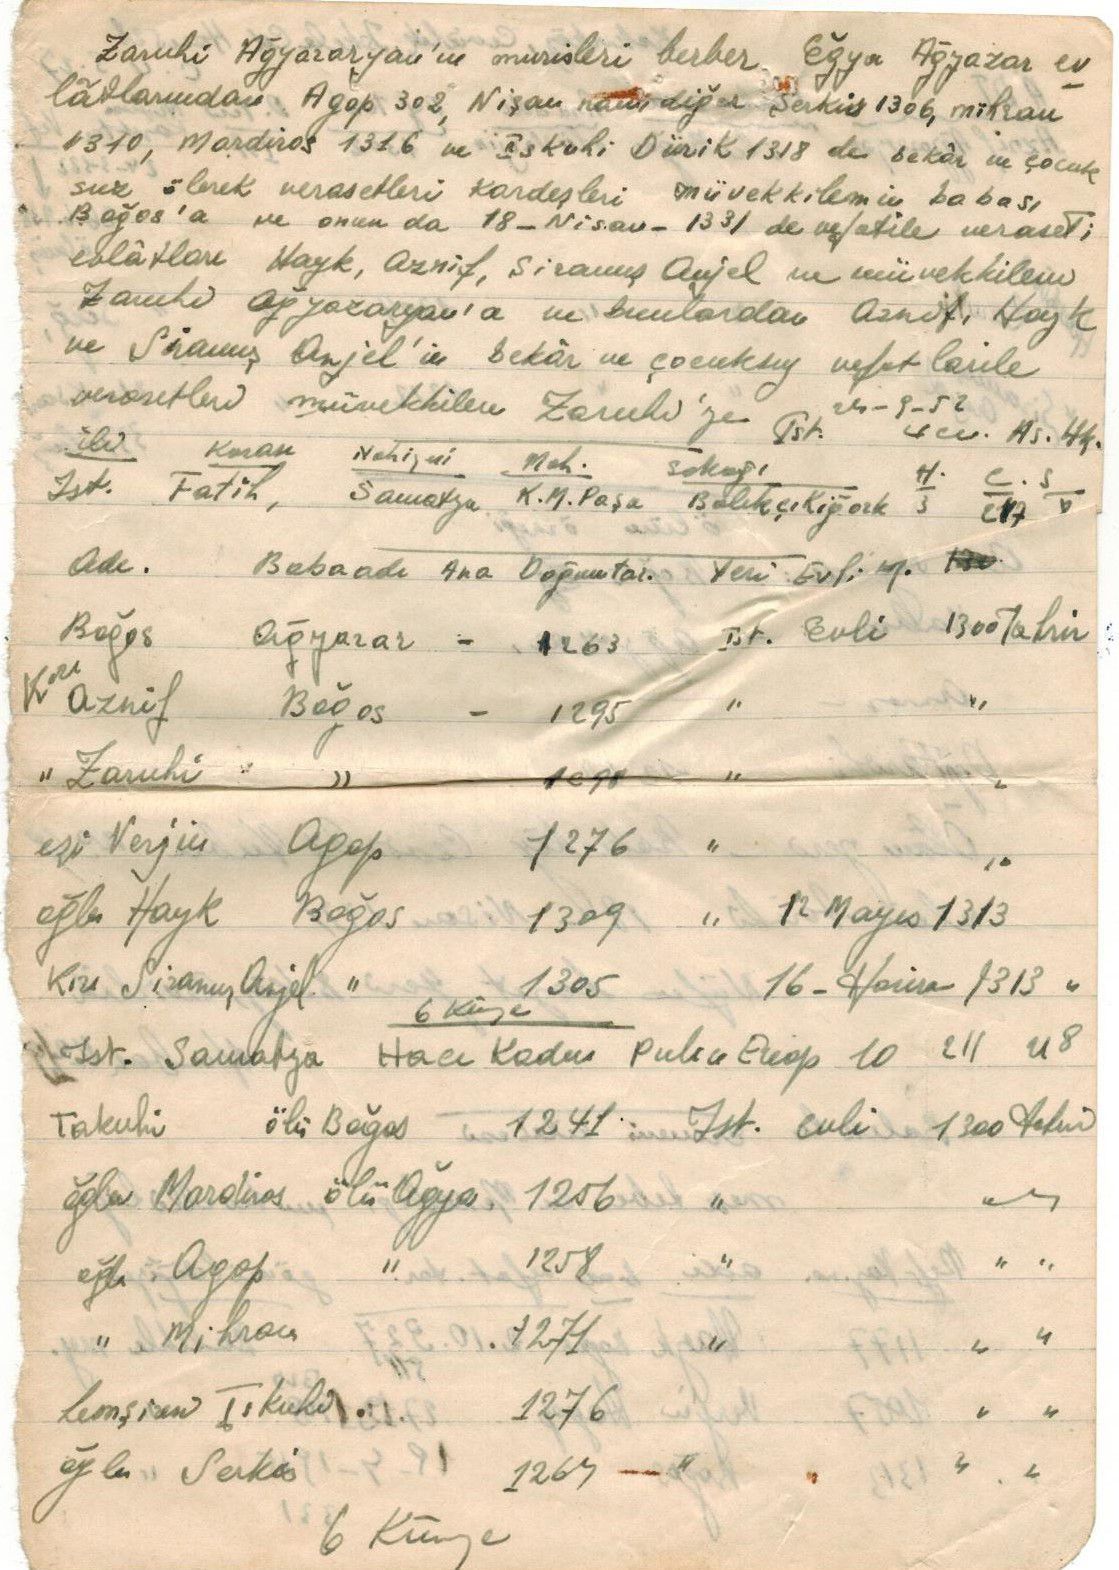 Zaruhi Ağyazaryan'ın murisleri berber Eğya Ağyazar ev
lâdlarından Agop 302, Nişan nam diğer Serkis 1306, mihran
1310, Mardiros 1316 ve Iskuhi Dürik 1318 de bekâr ve çocuk
suz ölerek verasetleri kardeşleri müvekkilemin babası
Boğos'a ve onun da 18-Nisan-1331 de vefatile veraseti
evlâtları Hayk, Aznif, Siranuş Anjel ve müvekkilem
Zaruhi Ağyazaryan'a ve bunlardan Aznif, Hayk
ve Siranuş Anjel'in bekâr ve çocuksuz vefatlarile
verasetleri müvekkilem Zaruhi'ye
24-9-52
İst. As. Hk.
ili Kazası Nahiyesi Mah. Sokağı H. C. S
Ist. Fatih, Samatya K.M.Paşa Balıkçı Kigork 3 217
Adı. Baba adı Ana Doğum tar. Yeri Evli M.
Boğos Ağyazar - 1263 İst. Evli 1300 Tahrir
Kızı Aznif Boğos - 1295 " "
" Zaruhi " 1298 " "
eşi Verjin Agop 1276 " "
oğlu Hayk Boğos 1309 " 12 Mayıs 1313
Kızı Siranuş Anjel " 1305 16-Hazira 1313 "
6 Künye
Ist. Samatya Hacı Kadın 10 211 118
Takuhi ölü Boğos 1241 Ist. evli 1300 tahrir
oğlu Mardiros ölü Ağya. 1256 " "
oğlu Agop " 1258 " " "
" Mihran 1271 " " "
hemşiresi Iskuhi 1276 " "
oğlu Serkis 1264 — " " "
6 Künye